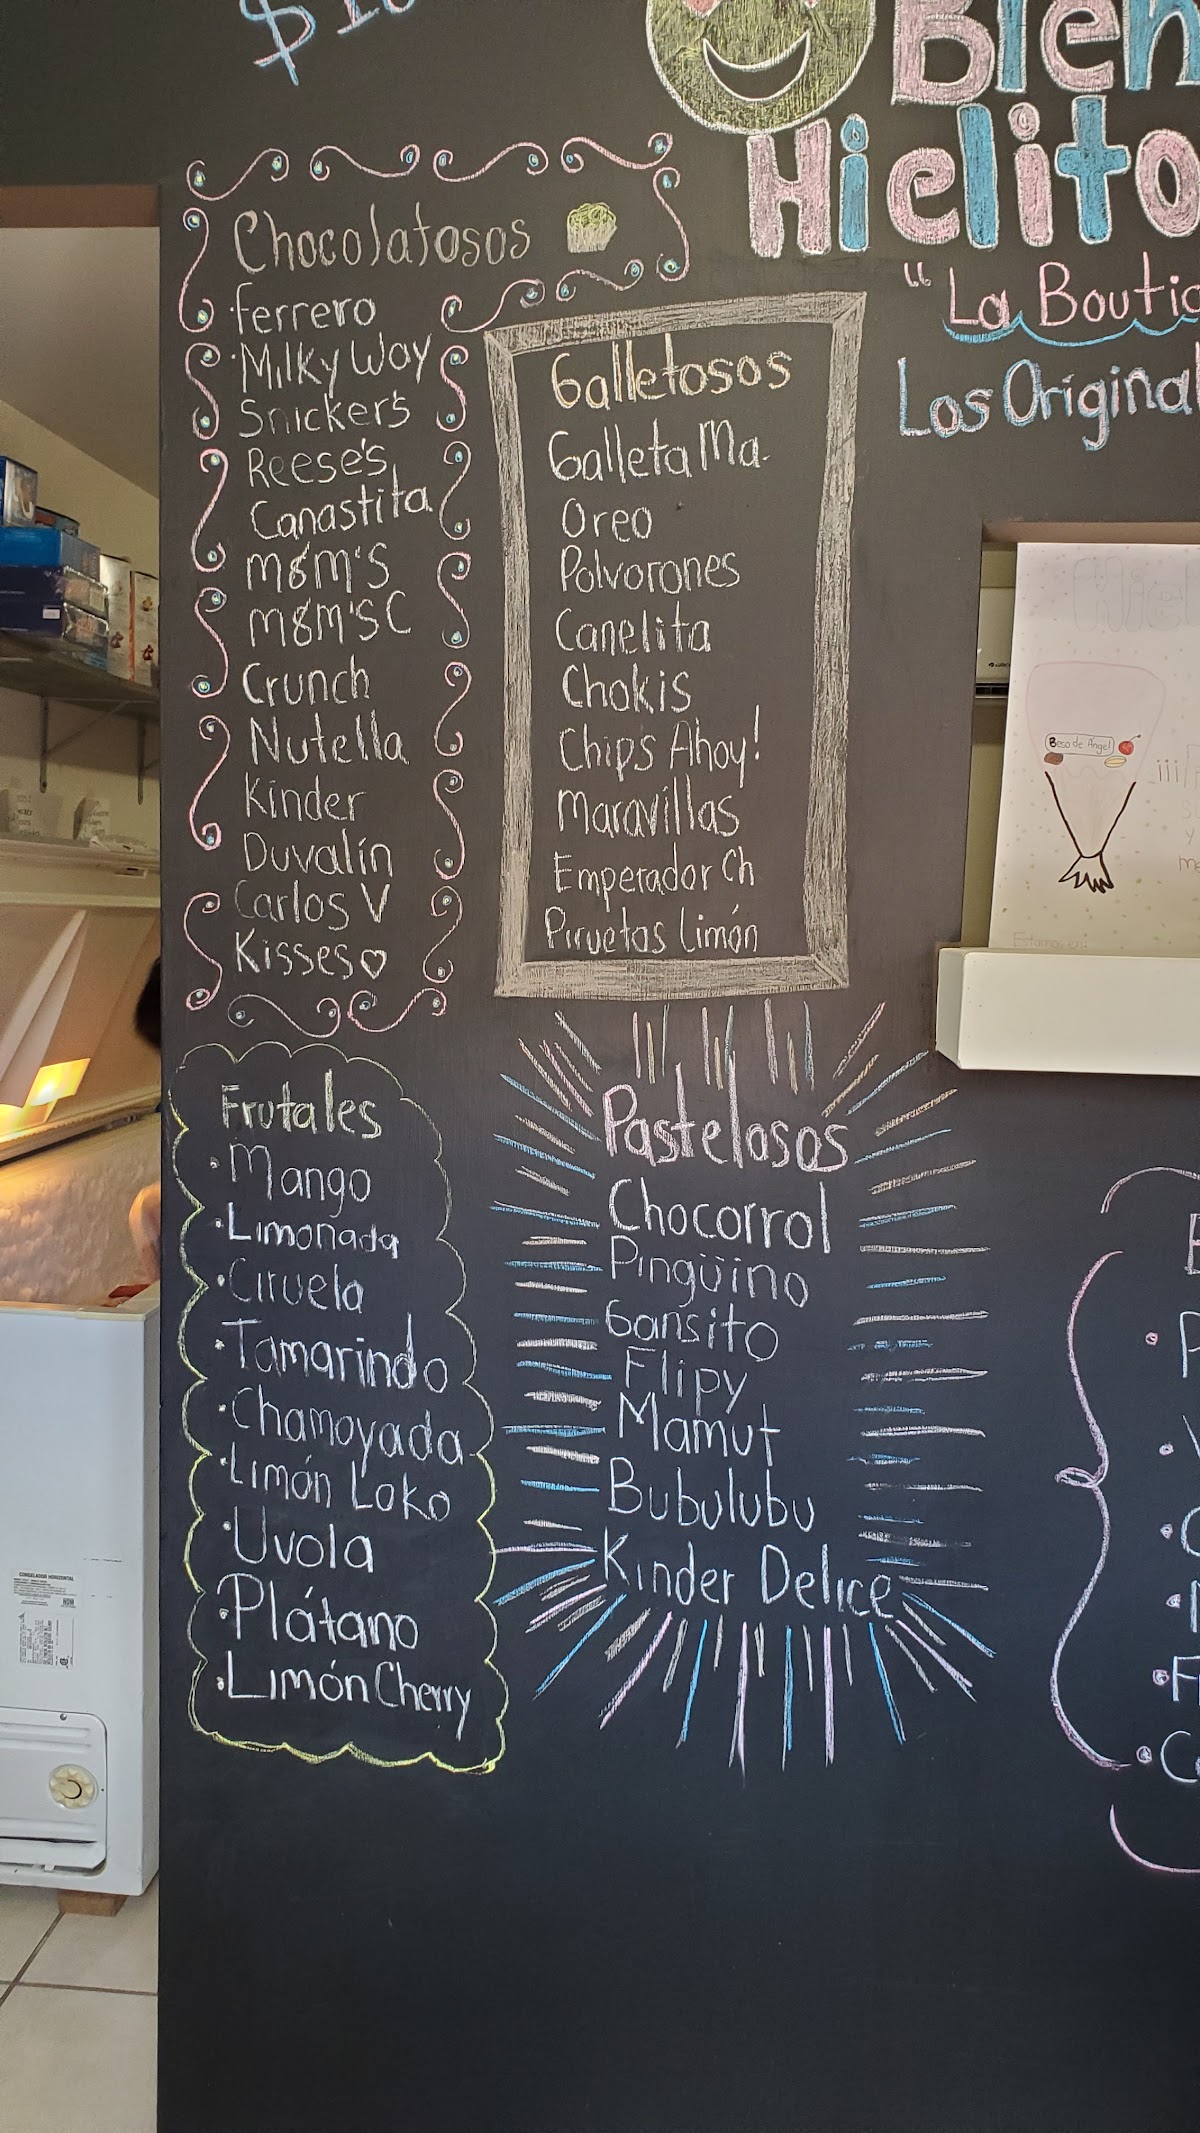 Chocolatosos
ferrero
Milky Way
Snickers
Reese's
Canastita
M&M'S
M&M'S C
Crunch
Nutella
Kinder
Duvalín
Carlos V
Kisses
Galletosos
Galleta Ma.
Oreo
Polvorones
Canelita
Chokis
Chips Ahoy!
Maravillas
Emperador Ch
Piruetas Limón
Frutales
Mango
Limonada
Ciruela
Tamarindo
Chamoyada
Limón Loko
Uvola
Plátano
Limón Cherry
Pastelosos
Chocorrol
Pingüino
Gansito
Flipy
Mamut
Bubulubu
Kinder Delice
Hielito
"La Boutic
Los Original
Beso de Ángel
CONGELADOR HORIZONTAL